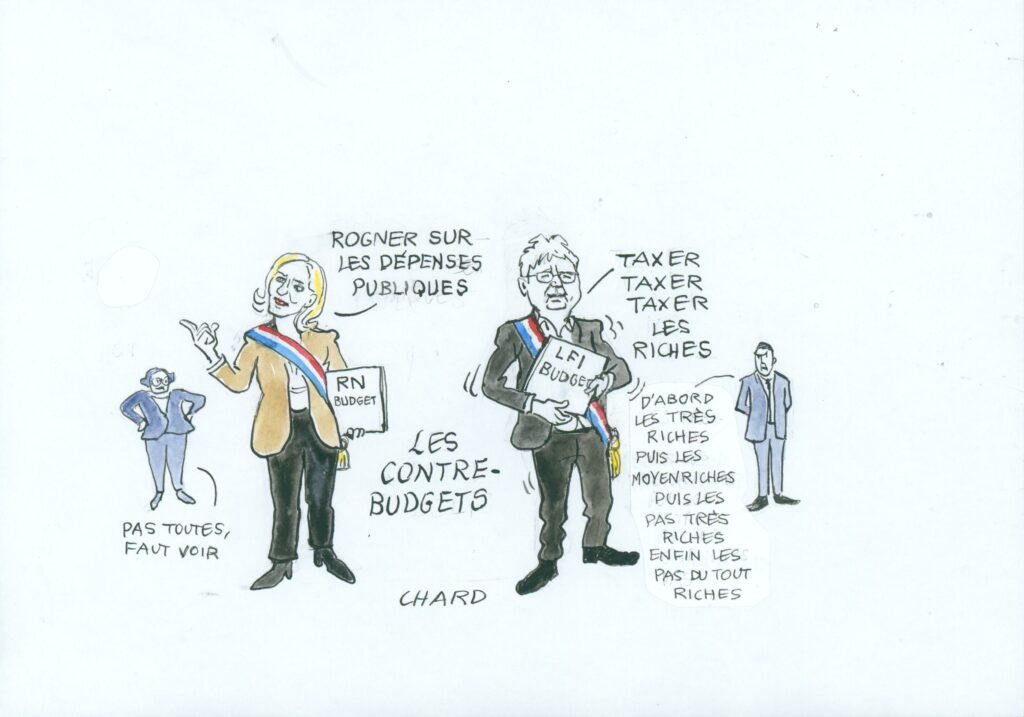 ROGNER SUR
LES DÉPENSES
PUBLIQUES
RN
BUDGET
PAS TOUTES,
FAUT VOIR
LES
CONTRE-
BUDGETS
TAXER
TAXER
TAXER
LES
RICHES
LFI
BUDGET
D'ABORD
LES TRÈS
RICHES
PUIS LES
MOYENRICHES
PUIS LES
PAS TRÈS
RICHES
ENFIN LES
PAS DU TOUT
RICHES
CHARD